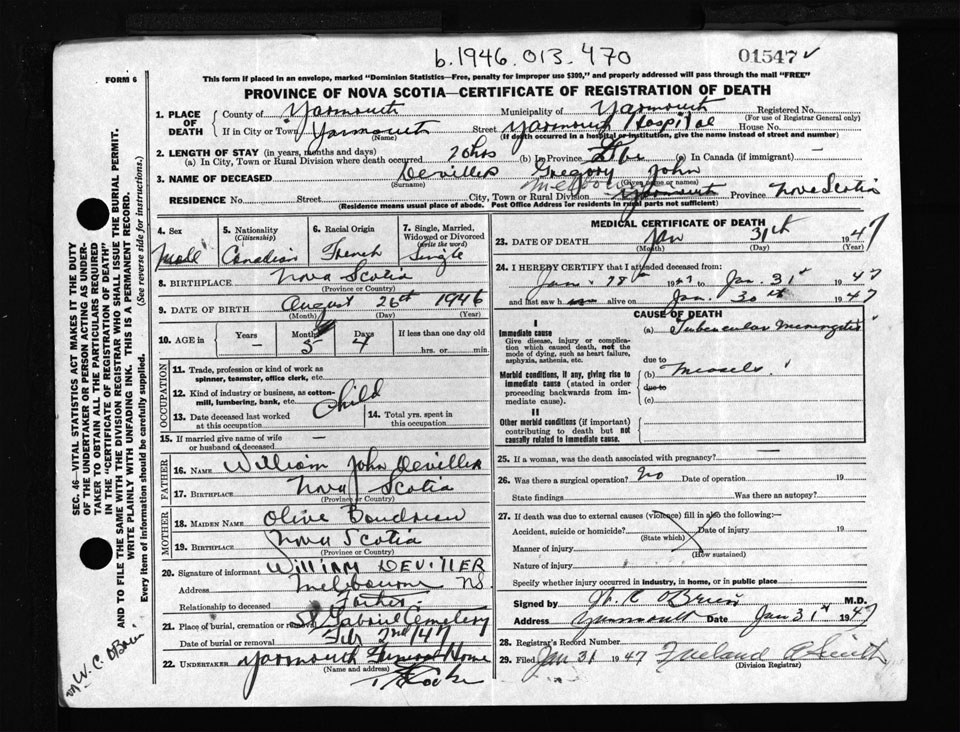 b.1946.013.470
01547
FORM 6
This form if placed in an envelope, marked "Dominion Statistics—Free, penalty for improper use $300," and properly addressed will pass through the mail "FREE"
PROVINCE OF NOVA SCOTIA—CERTIFICATE OF REGISTRATION OF DEATH
1. PLACE OF DEATH County of Yarmouth Municipality of Yarmouth Registered No.
(For use of Registrar General only)
If in City or Town Yarmouth Street Yarmouth Hospital House No.
(Name) (If death occurred in a hospital or institution, give the name instead of street and number)
2. LENGTH OF STAY (in years, months and days)
(a) In City, Town or Rural Division where death occurred (b) In Province Life (c) In Canada (if immigrant) —
3. NAME OF DECEASED Deviller Gregory John
(Surname) (Given name or names)
Melbourne
RESIDENCE No. Street City, Town or Rural Division Yarmouth Province Nova Scotia
(Residence means usual place of abode. Post Office Address for residents in rural parts not sufficient)
4. Sex Male
5. Nationality (Citizenship) Canadian
6. Racial Origin French
7. Single, Married, Widowed or Divorced (write the word) Single
8. BIRTHPLACE Nova Scotia
(Province or Country)
9. DATE OF BIRTH August 26th 1946
(Month) (Day) (Year)
10. AGE in Years — Months 5 Days 4 If less than one day old
hrs. or min.
OCCUPATION
11. Trade, profession or kind of work as spinner, teamster, office clerk, etc.
12. Kind of industry or business, as cotton-mill, lumbering, bank, etc.
Child
13. Date deceased last worked at this occupation
14. Total yrs. spent in this occupation
15. If married give name of wife or husband of deceased —
FATHER
16. NAME William John Deviller
17. BIRTHPLACE Nova Scotia
(Province or Country)
MOTHER
18. MAIDEN NAME Olive Boudreau
19. BIRTHPLACE Nova Scotia
(Province or Country)
20. Signature of informant WILLIAM DEVILLER
Address Melbourne NS.
Relationship to deceased Father.
21. Place of burial, cremation or removal St Gabriel Cemetery
Date of burial or removal Feb 2nd/47
22. UNDERTAKER Yarmouth Funeral Home
(Name and address)
MEDICAL CERTIFICATE OF DEATH
23. DATE OF DEATH Jan 31st 1947
(Month) (Day)
24. I HEREBY CERTIFY that I attended deceased from:
Jan. 28th 1947 to Jan. 31st 1947
and last saw alive on Jan. 30th 1947
CAUSE OF DEATH
I
Immediate cause
Give disease, injury or complication which caused death, not the mode of dying, such as heart failure, asphyxia, asthenia, etc.
(a) Tubercular Meningitis
due to
Morbid conditions, if any, giving rise to immediate cause (stated in order proceeding backwards from immediate cause).
(b) Measles
due to
(c)
II
Other morbid conditions (if important) contributing to death but not causally related to immediate cause.
25. If a woman, was the death associated with pregnancy?
26. Was there a surgical operation? no Date of operation 19
State findings Was there an autopsy?
27. If death was due to external causes (violence) fill in also the following:—
Accident, suicide or homicide? Date of injury 19
(State which)
Manner of injury
(How sustained)
Nature of injury
Specify whether injury occurred in industry, in home, or in public place
Signed by W. C O'Brien M.D.
Address Yarmouth Date Jan 31st 1947
28. Registrar's Record Number
29. Filed Jan 31 1947
(Division Registrar)
SEC. 46—VITAL STATISTICS ACT MAKES IT THE DUTY
OF THE UNDERTAKER OR PERSON ACTING AS UNDERTAKER
TO OBTAIN ALL THE PARTICULARS REQUIRED
IN THE "CERTIFICATE OF REGISTRATION OF DEATH"
AND TO FILE THE SAME WITH THE DIVISION REGISTRAR WHO SHALL ISSUE THE BURIAL PERMIT.
WRITE PLAINLY WITH UNFADING INK. THIS IS A PERMANENT RECORD.
Every item of information should be carefully supplied. (See reverse side for instructions.)
W. C. O'Brien